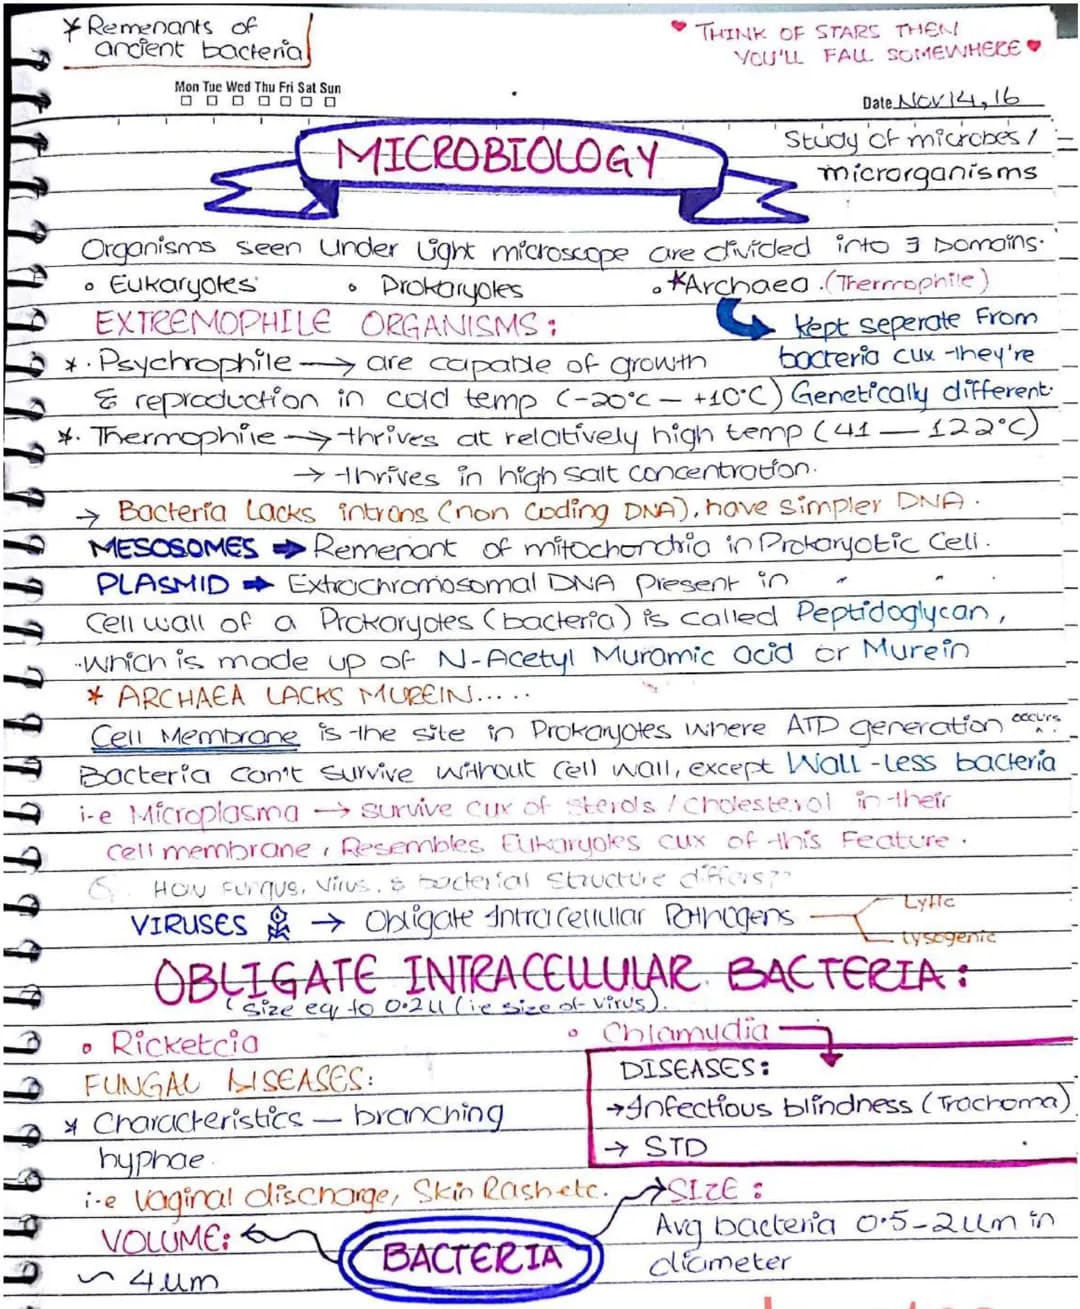 * Remenants of
ancient bacteria
♥ THINK OF STARS THEN
YOU'LL FALL SOMEWHERE ♥
Mon Tue Wed Thu Fri Sat Sun
Date Nov 14, 16
MICROBIOLOGY
Study of microbes /
microrganisms
Organisms seen Under Light microscope are divided into 3 Domains.
• Eukaryotes • Prokaryotes • *Archaea (Thermophile)
Kept seperate From
bacteria cux they're
Genetically different.
EXTREMOPHILE ORGANISMS:
* Psychrophile → are capable of growth
& reproduction in cold temp (-20°C - +10°C)
* Thermophile → thrives at relatively high temp (41 — 122°C)
→ thrives in high salt concentration.
→ Bacteria Lacks introns (non Coding DNA), have simpler DNA.
MESOSOMES ➡ Remenant of mitochondria in Prokaryotic Cell.
PLASMID ➡ Extrachromosomal DNA Present in " "
Cell wall of a Prokaryotes (bacteria) is called Peptidoglycan,
Which is made up of N-Acetyl Muramic acid or Murein
* ARCHAEA LACKS MUREIN.....
Cell Membrane is the site in Prokaryotes where ATP generation occurs.
Bacteria Can't Survive Without Cell wall, except Wall-less bacteria
i-e Microplasma → survive cux of sterols / cholesterol in their
cell membrane, Resembles Eukaryotes cux of this Feature.
Q. How Fungus, Virus, & bacterial Structure differs??
VIRUSES → Obligate Intracellular Pathogens
Lytic
Lysogenic
OBLIGATE INTRACELLULAR BACTERIA:
(Size eq to 0.2u (ie size of Virus).
• Ricketcia
• Chlamydia
DISEASES:
→ Infectious blindness (Trachoma)
→ STD
FUNGAL DISEASES:
* Characteristics — branching
hyphae.
i-e Vaginal discharge, Skin Rash etc.
VOLUME:
~ 4um
BACTERIA
→ SIZE:
Avg bacteria 0.5-2um in
diameter